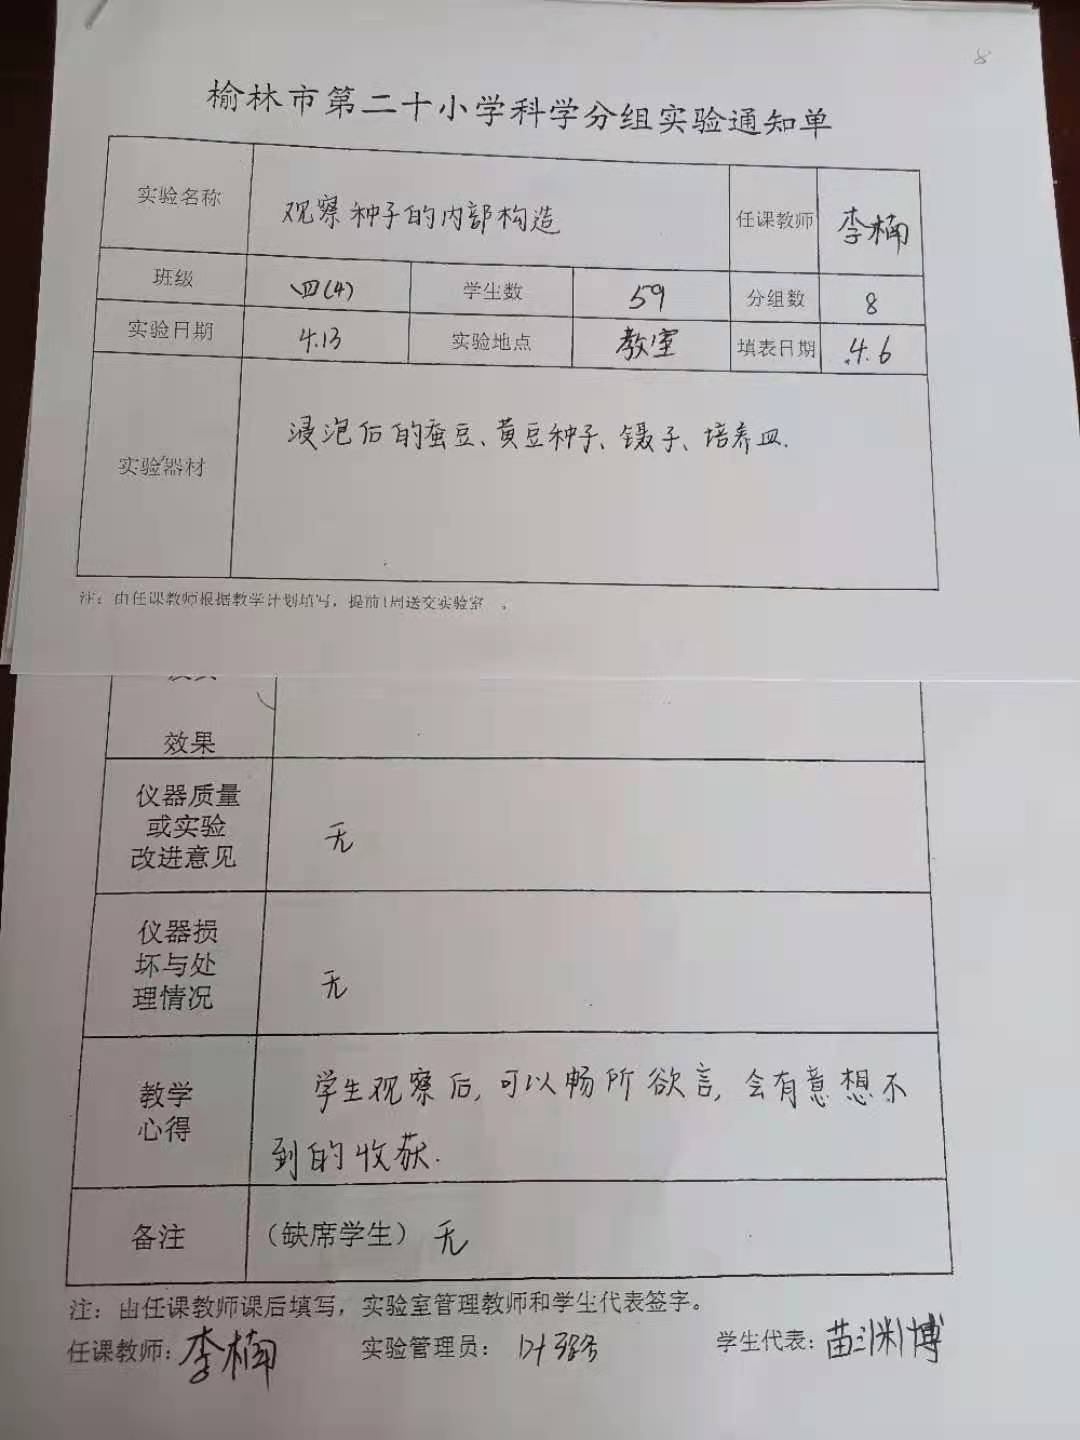 8
榆林市第二十小学科学分组实验通知单
实验名称 观察种子的内部构造 任课教师 李楠
班级 四(4) 学生数 59 分组数 8
实验日期 4.13 实验地点 教室 填表日期 4.6
实验器材 浸泡后的蚕豆、黄豆种子、镊子、培养皿.
注：由任课教师根据教学计划填写，提前1周送交实验室 。
效果
仪器质量
或实验
改进意见
无
仪器损
坏与处
理情况
无
教学
心得
学生观察后,可以畅所欲言,会有意想不
到的收获.
备注 （缺席学生）无
注：由任课教师课后填写，实验室管理教师和学生代表签字。
任课教师：李楠 实验管理员： 学生代表：苗渊博